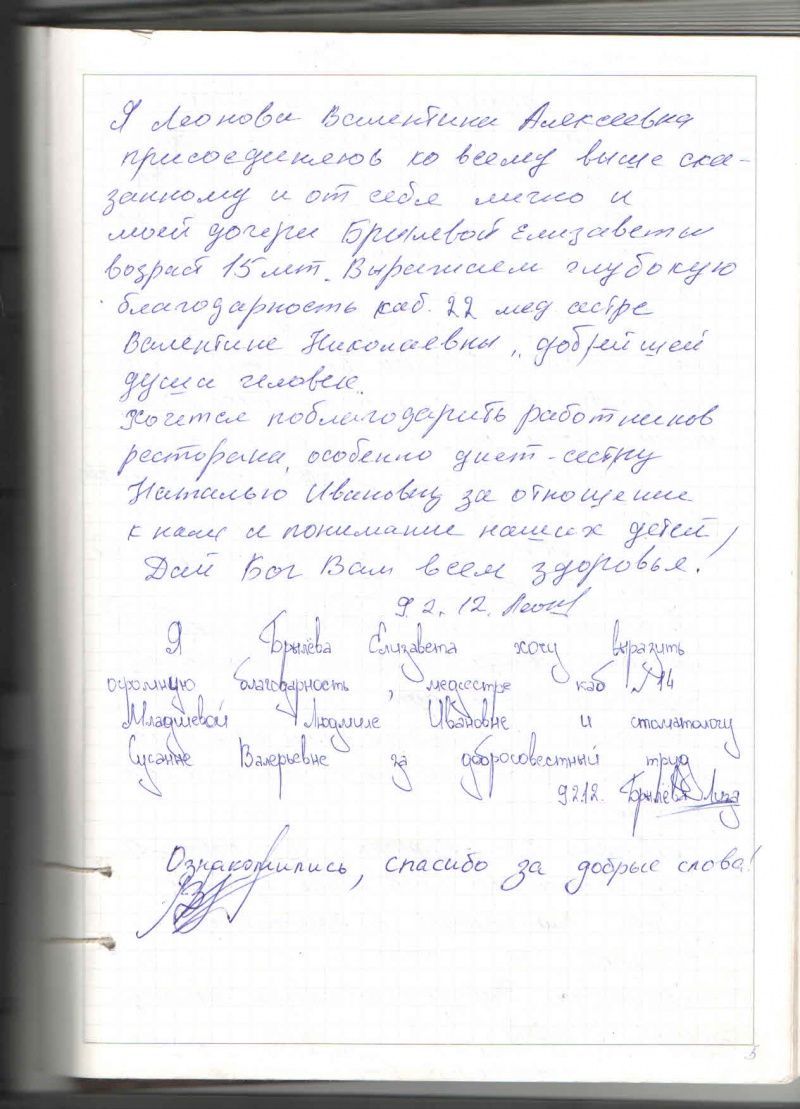 Я Леонова Валентина Алексеевна
присоединяюь ко всему выше ска-
занному и от себя лично и
моей дочери Брылевой Елизаветы
возраст 15 лет. Выражаем глубокую
благодарность каб. 22 мед сестре
Валентине Николаевны, добрейшей
души человек.
Хочется поблагодарить работников
ресторана, особенно диет-сестру
Наталью Ивановну за отношение
к нам и понимание наших детей,
Дай Бог Вам всем здоровья!
9.2.12.
Я Брылёва Елизавета хочу выразить
огромную благодарность, медсестре каб №14
Младшевой Людмиле Ивановне и стоматологу
Сусанне Валерьевне за добросовестный труд
9.2.12. Брылёва Лиза
Ознакомились, спасибо за добрые слова!
5